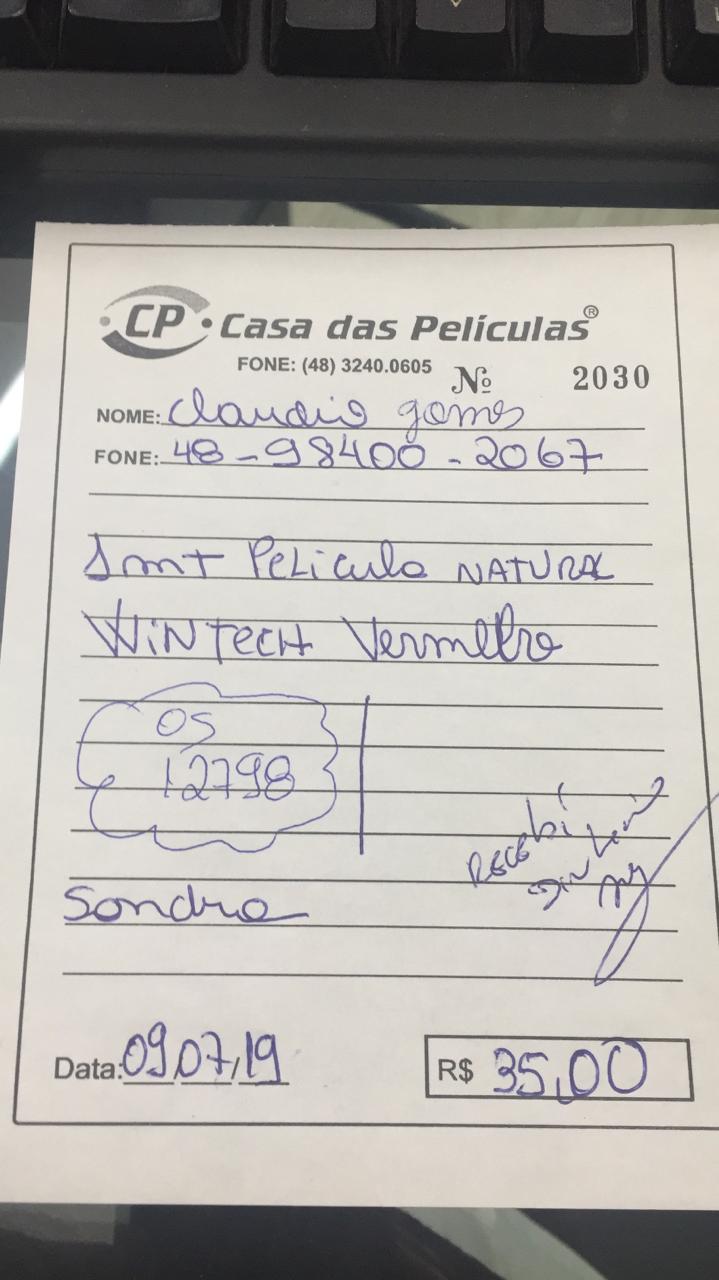 CP • Casa das Películas®
FONE: (48) 3240.0605 Nº 2030
NOME: Claudio gomes
FONE: 48-98400-2067
1mt Pelicula NATURAL
WINTECH Vermelho
OS
12798
Recebi
Sandra
Data: 09/07/19 R$ 35,00